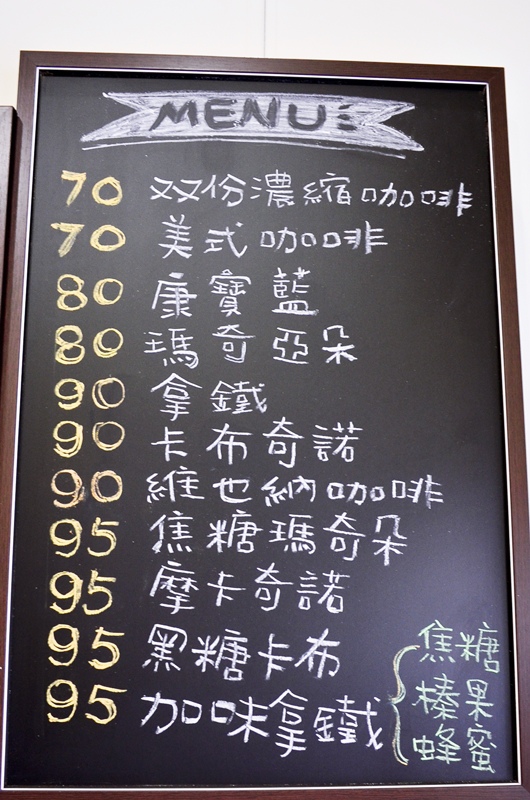 MENU
70 双份濃縮咖啡
70 美式咖啡
80 康寶藍
80 瑪奇亞朵
90 拿鐵
90 卡布奇諾
90 維也納咖啡
95 焦糖瑪奇朵
95 摩卡奇諾
95 黑糖卡布
95 加味拿鐵
焦糖
榛果
蜂蜜